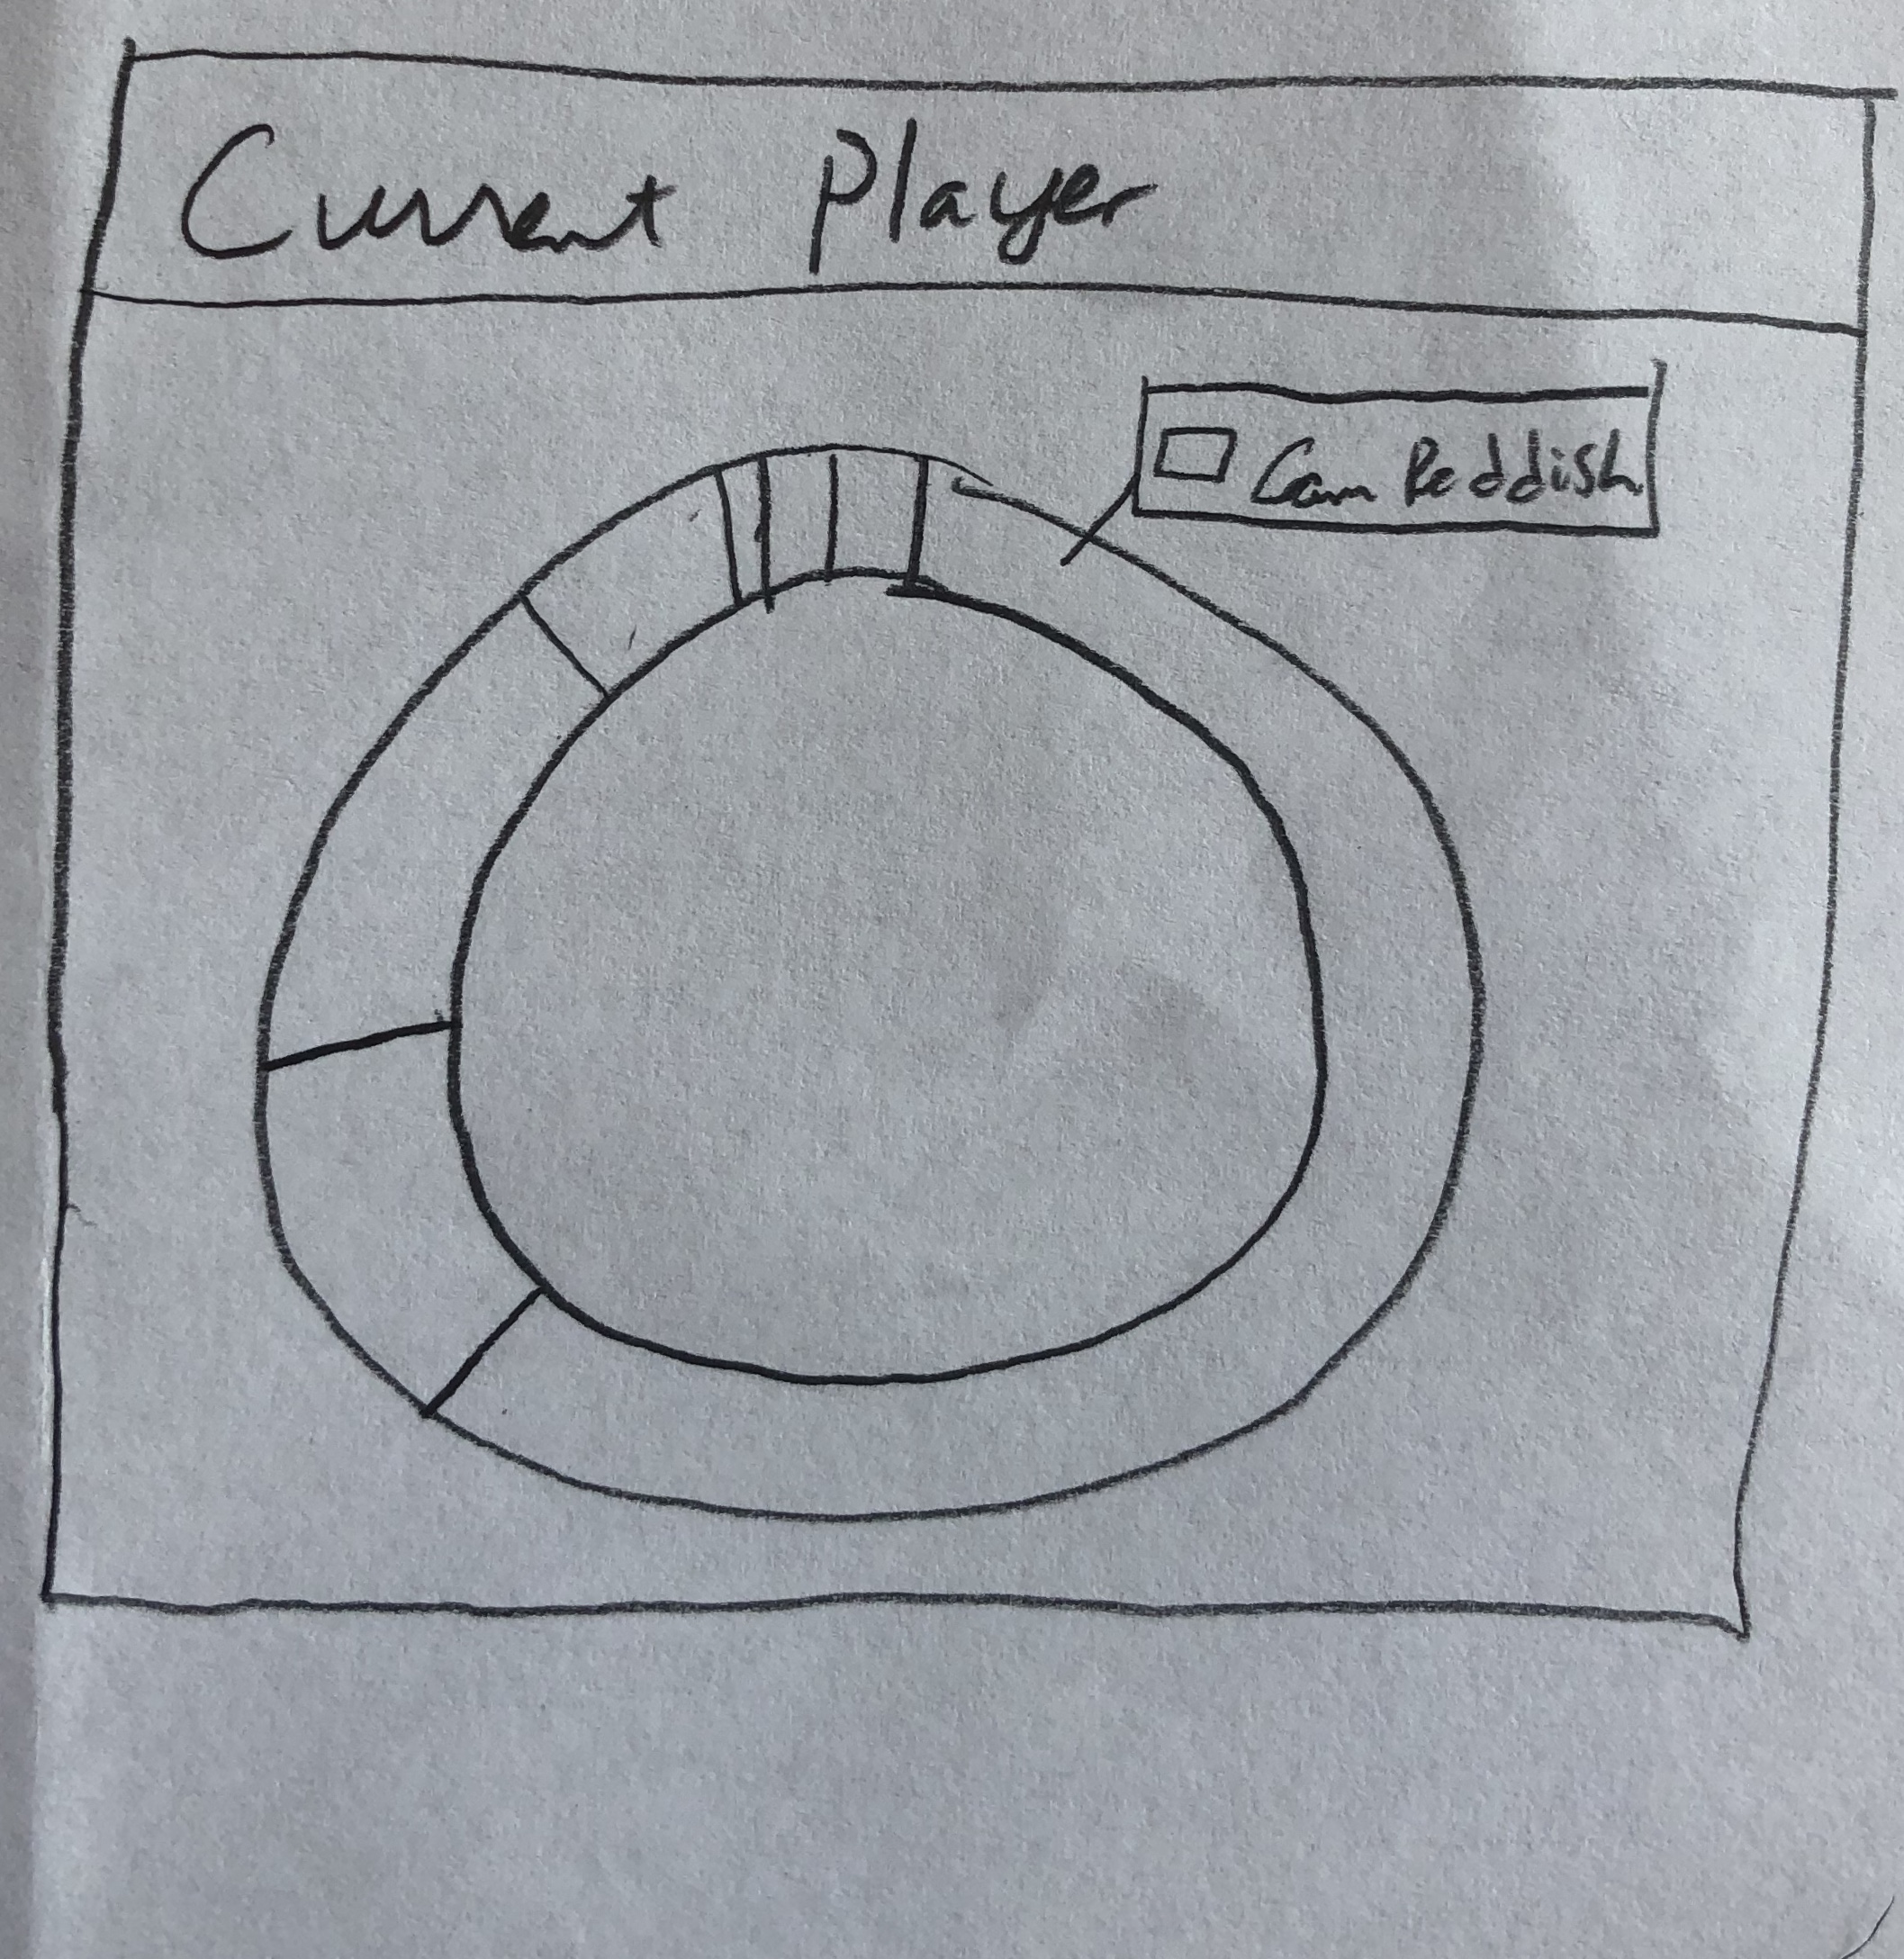 Current Player
Cam Reddish